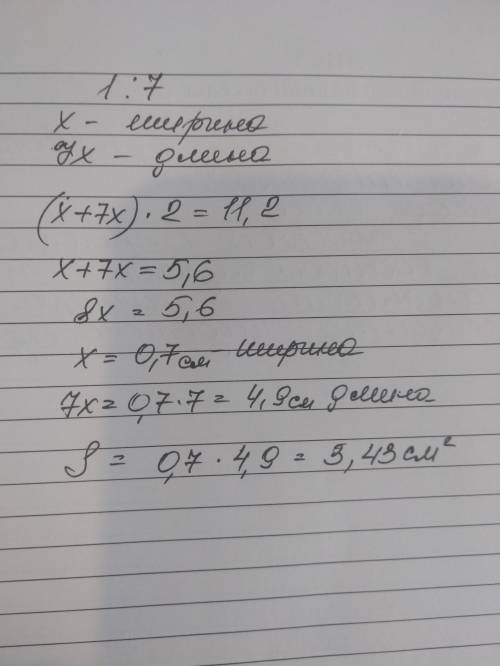 1:7
x - ширина
7x - длина
(x+7x)·2=11,2
x+7x=5,6
8x = 5,6
x = 0,7см ширина
7x=0,7·7=4,9см длина
S = 0,7·4,9=3,43см²